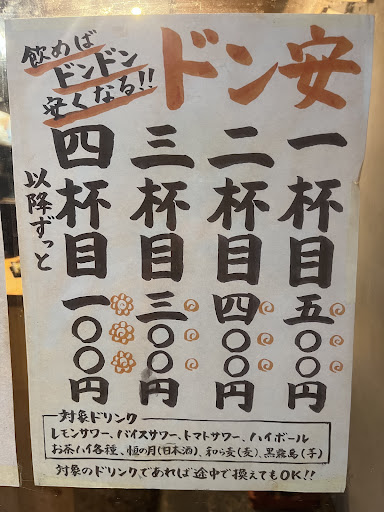 ドン安
飲めば
ドンドン
安くなる!!
一杯目五〇〇円
二杯目四〇〇円
三杯目三〇〇円
四杯目一〇〇円
以降ずっと
対象ドリンク
レモンサワー、バイスサワー、トマトサワー、ハイボール
お茶ハイ各種、恒の月(日本酒)、和ら麦(麦)、黒霧島(芋)
対象のドリンクであれば途中で換えてもOK!!